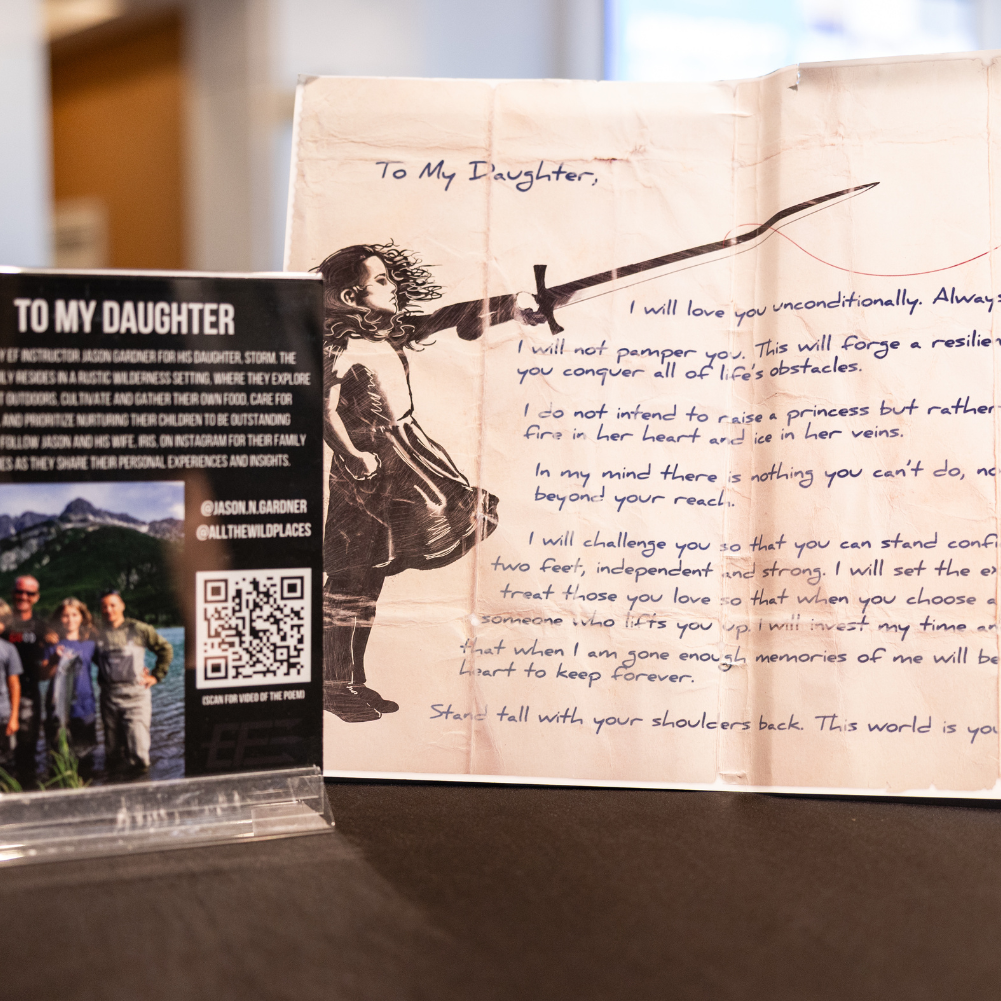 TO MY DAUGHTER
EF INSTRUCTOR JASON GARDNER FOR HIS DAUGHTER, STORM. THE
RESIDES IN A RUSTIC WILDERNESS SETTING, WHERE THEY EXPLORE
OUTDOORS, CULTIVATE AND GATHER THEIR OWN FOOD, CARE FOR
AND PRIORITIZE NURTURING THEIR CHILDREN TO BE OUTSTANDING
FOLLOW JASON AND HIS WIFE, IRIS, ON INSTAGRAM FOR THEIR FAMILY
AS THEY SHARE THEIR PERSONAL EXPERIENCES AND INSIGHTS.
@JASON.N.GARDNER
@ALLTHEWILDPLACES
(SCAN FOR VIDEO OF THE POEM)
To My Daughter,
I will love you unconditionally. Always
I will not pamper you. This will forge a resilien
you conquer all of life's obstacles.
I do not intend to raise a princess but rather
fire in her heart and ice in her veins.
In my mind there is nothing you can't do, no
beyond your reach.
I will challenge you so that you can stand confi
two feet, independent and strong. I will set the ex
treat those you love so that when you choose a
someone who lifts you up. I will invest my time an
that when I am gone enough memories of me will be
heart to keep forever.
Stand tall with your shoulders back. This world is you